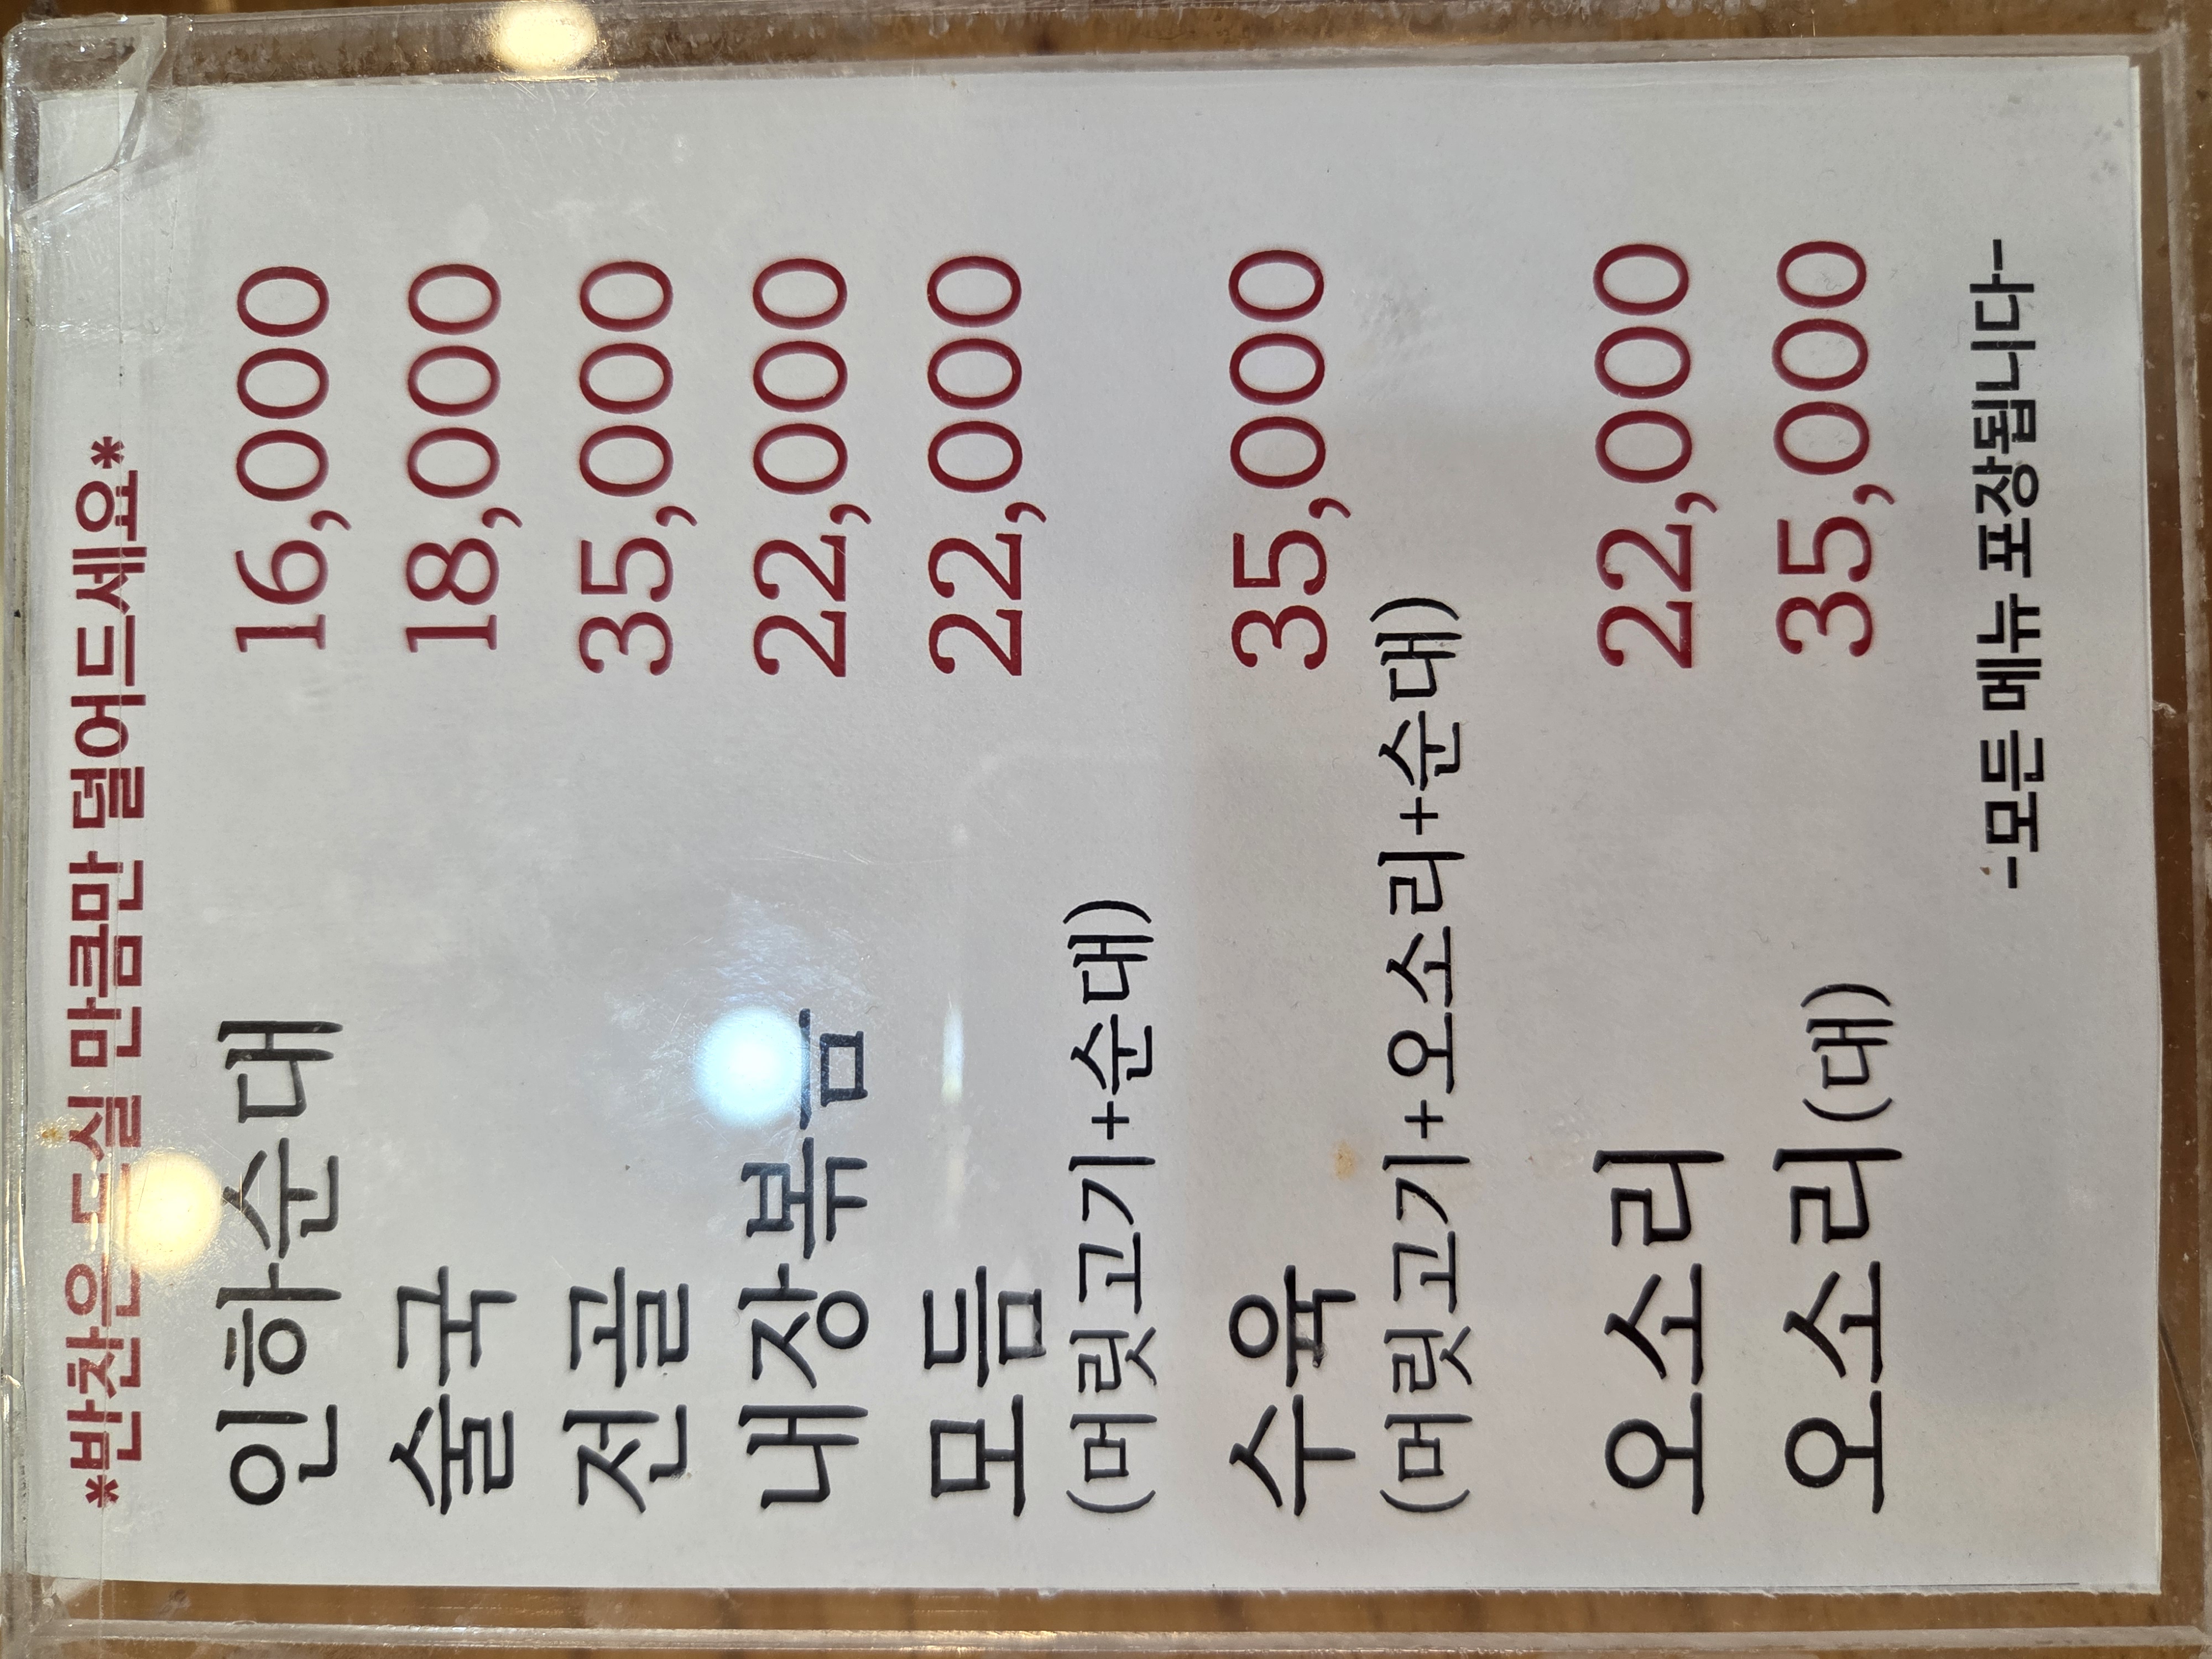 *반찬은 드실 만큼만 덜어드세요*
인하순대 16,000
술국 18,000
전골 35,000
내장볶음 22,000
모듬 22,000
(머릿고기+순대)
수육 35,000
(머릿고기+오소리+순대)
오소리 22,000
오소리(대) 35,000
-모든 메뉴 포장됩니다-